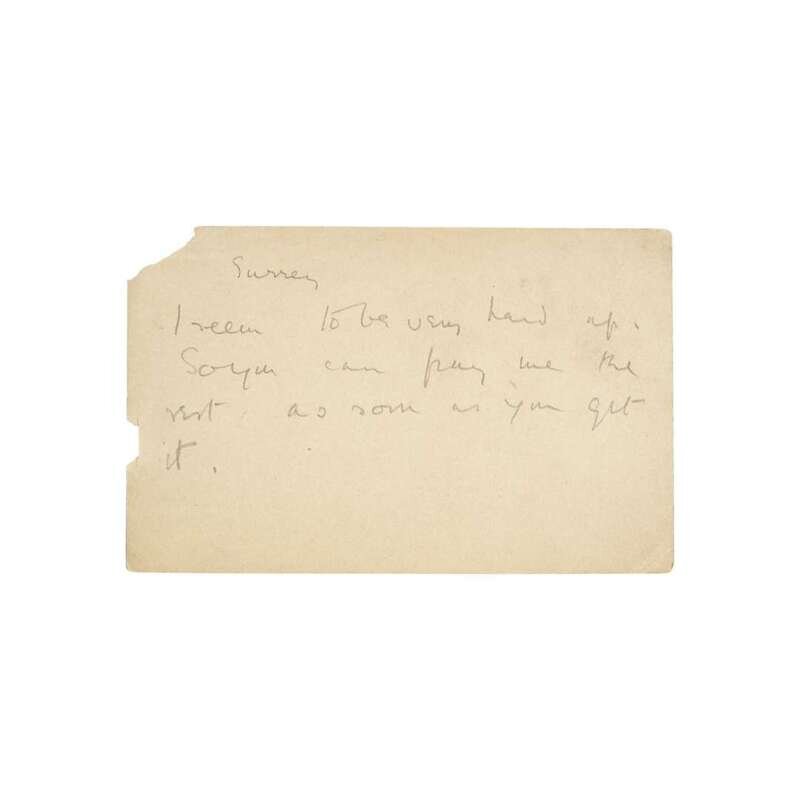 Surrey
I seem to be very hard up.
So you can pay me the
rest as soon as you get
it.